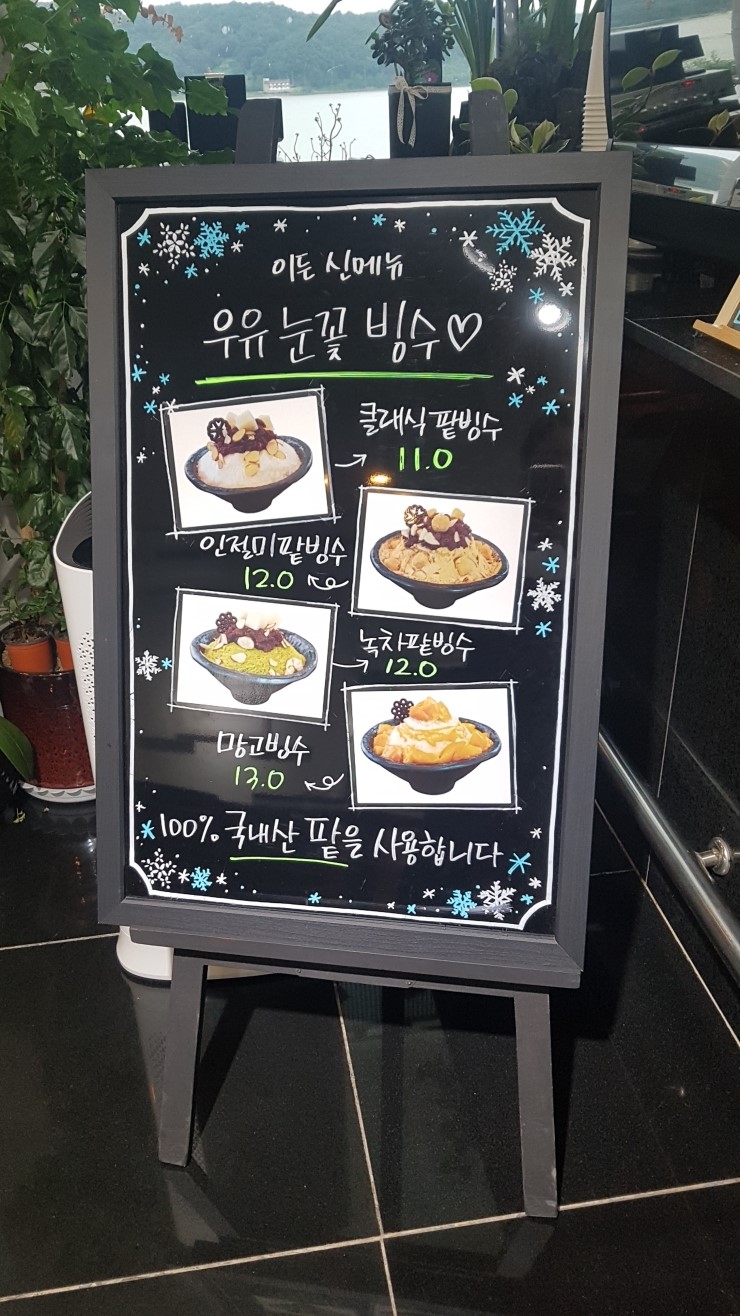 이든 신메뉴
우유 눈꽃 빙수♡
클래식 팥빙수
11.0
인절미팥빙수
12.0
녹차팥빙수
12.0
망고빙수
13.0
100% 국내산 팥을 사용합니다